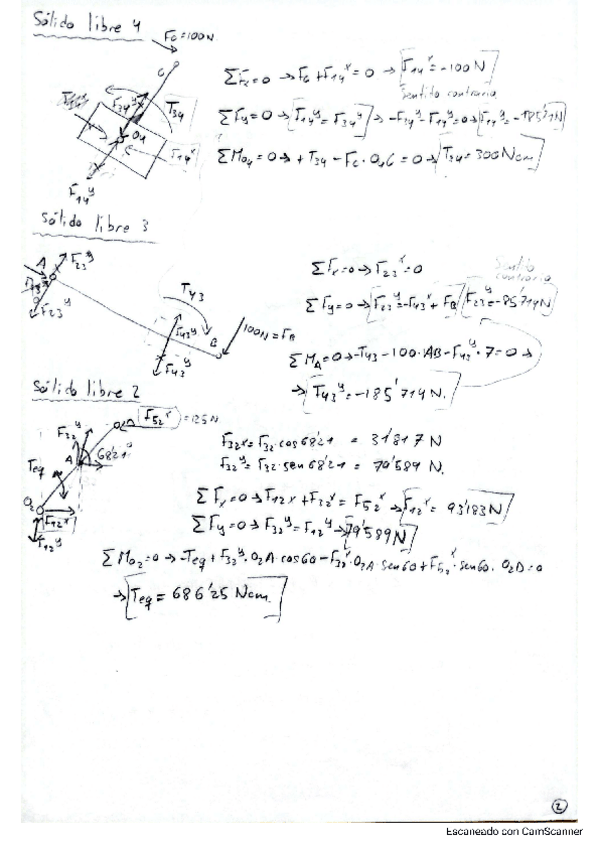 Sólido libre 4
Fc=100N
C
F34y
T34
O4
F14x
F14y
ΣFx=0 → Fc+F14x=0 → F14x=-100N
Sentido contrario
ΣFy=0 → F14y=F34y → -F34y-F14y=0 → F14y=-185'71N
ΣMO4=0 → +T34-Fc·O4C=0 → T34=300Ncm
Sólido libre 3
A
F23y
F23y
T43
F43y
B
100N=FB
F43y
ΣFx=0 → F23x=0
Sentido contrario
ΣFy=0 → F23y=-F43y+FB F23y=-85'714N
ΣMA=0 → -T43-100·AB-F43y·7=0 →
→ F43y=-185'714N.
Sólido libre 2
F52x =125N
F32y
A
68'21
Teq
O2
F12x
F12y
F32x=F32·cos68'21 = 31'817 N
F32y=F32·sen68'21 = 79'589 N.
ΣFx=0 → F12x+F32x=F52x → F12x=93'183N
ΣFy=0 → F32y=F12y → 79'589N
ΣMO2=0 → -Teq+F32y·O2A·cos60-F32x·O2A·sen60+F52x·sen60·O2D=0
→ Teq=686'25 Ncm.
2
Escaneado con CamScanner